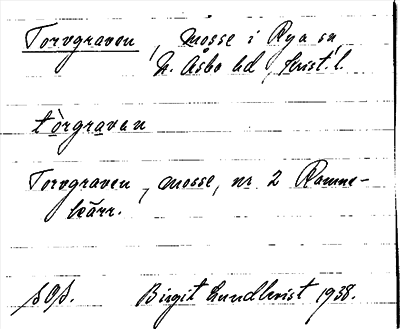 Torvgraven, mosse i Rya sn,
N. Åsbo hd, Krist. l.
tòrgravan
Torvgraven, mosse, nr 2 Ramme-
kärr.
sOs. Birgit Lundkvist 1938.